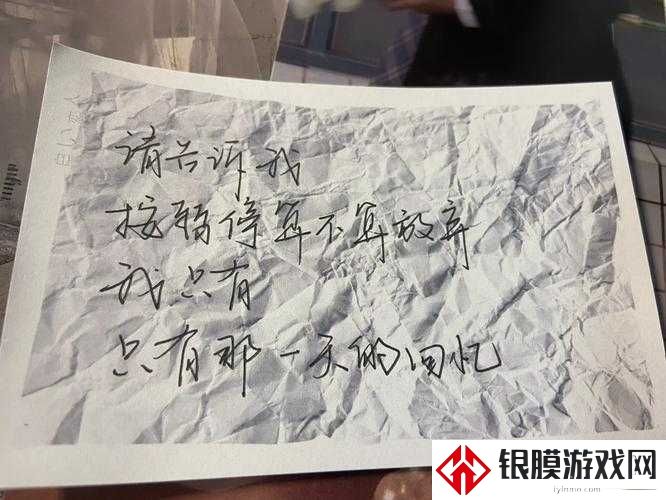 请告诉我
按暂停算不算放弃
我只有
只有那一天的回忆
银膜游戏网